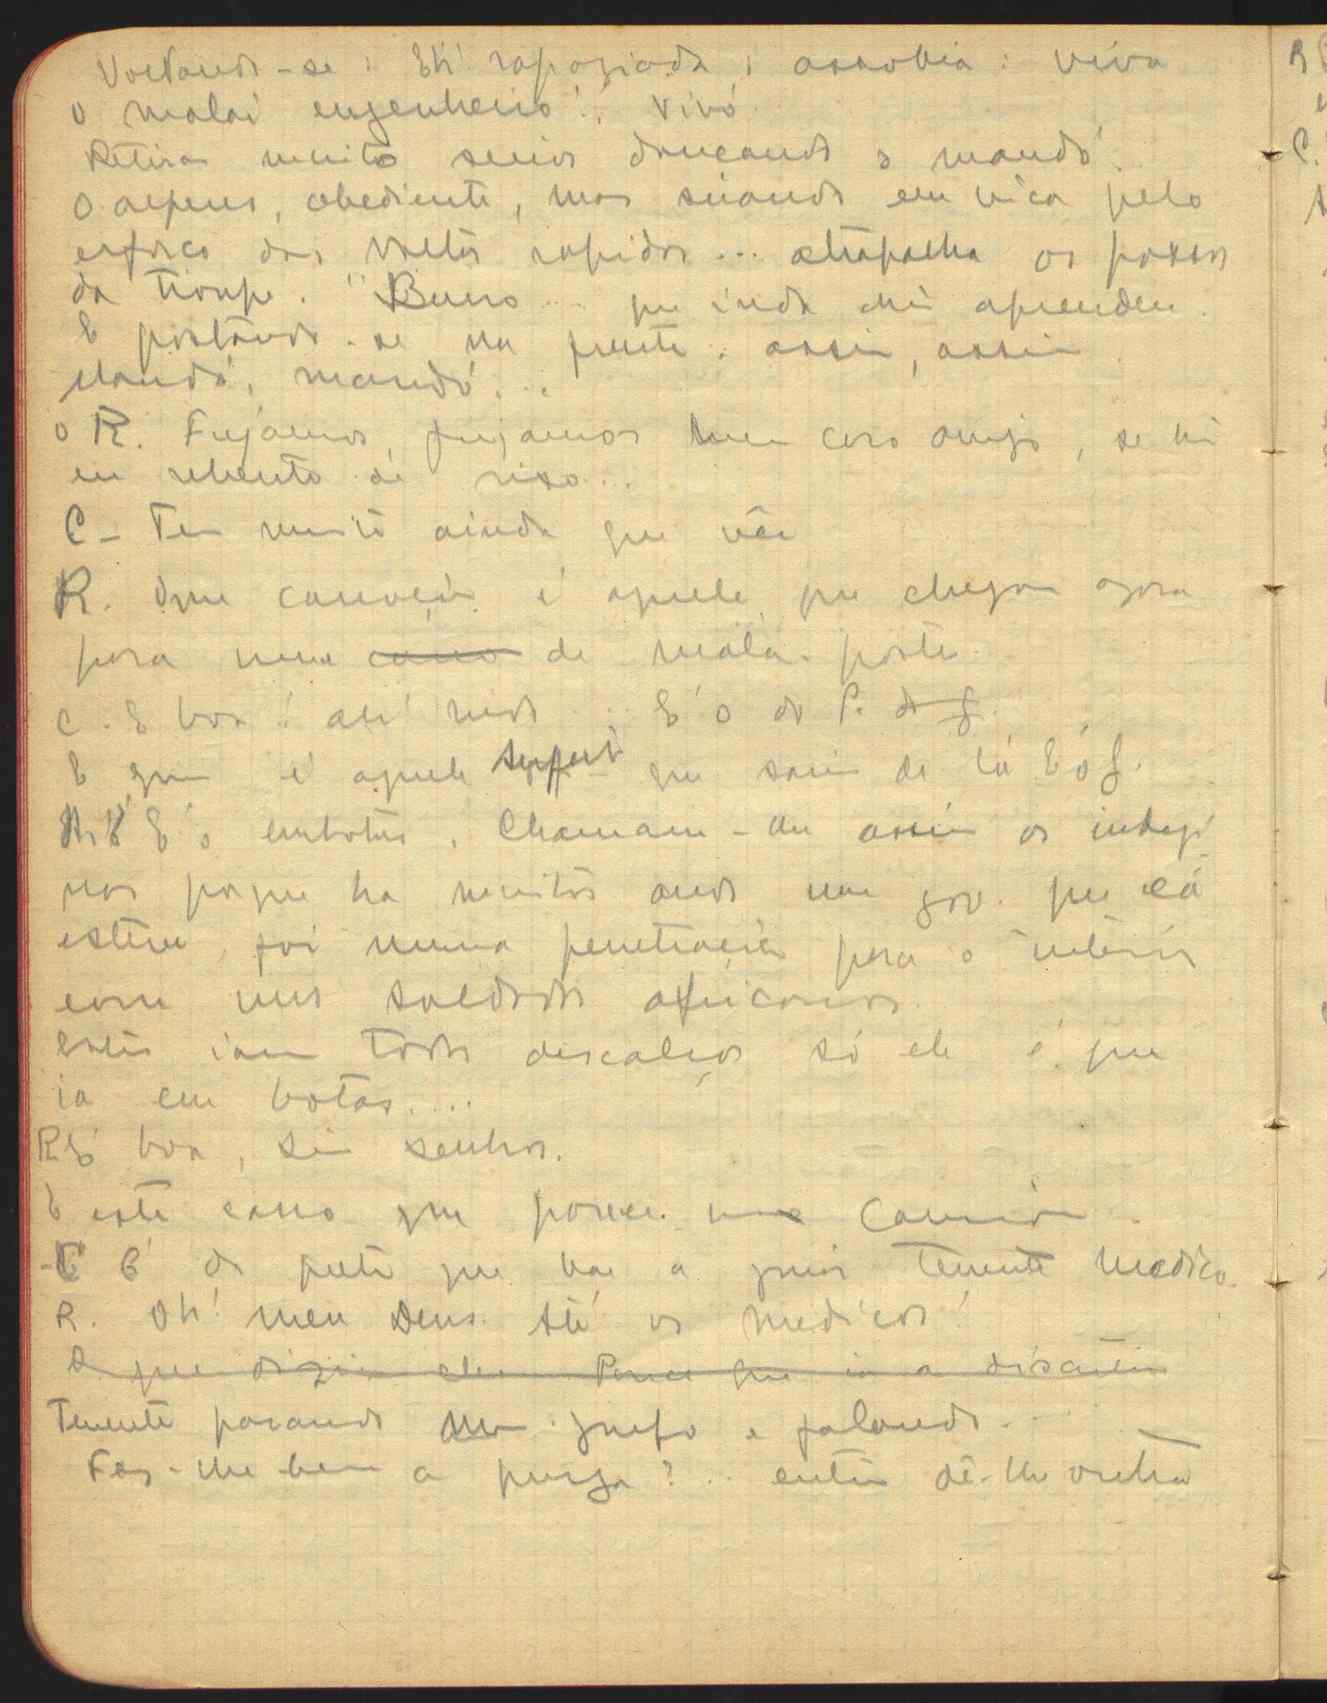 Voltando-se: Eh! rapaziada; assobia: viva
o malai engenheiro!! Vivó
Retira muito serio dançando o mandó.
O alferes, obediente, mas suando em bica pelo
esforço das voltas rapidas... atrapalha os passos
da troupe. "Burro... que inda não aprendeu.
E postando-se na frente: assim, assim
Mandó, mandó...
o R. Fujamos, fujamos meu caro amigo, se não
eu rebento de riso...
C- Tem muito ainda que vêr
R. Que carroção é aquele que chegou agora
para uma de mala-posta
C. É boa! ah! nisto... É o do P. do G.
E quem é aquele que saiu de lá É o G.
É o embotas. Chamam-lhe assim os indigi
nas porque ha muitos anos um gov. que cá
esteve, foi numa penetração para o interior
com uns soldados africanos.
Estes iam todos descalços só ele é que
ia em botas....
R É boa, sim senhor.
E este carro que parece um camião.
C É do preto que vae a guiar Tenente Medico.
R. Oh! meu Deus. Até os medicos!
O que dizia ele. Parece que ia a discutir
Tenente parando um grupo e falando...
Fez-lhe bem a purga?... então dê-lhe outra